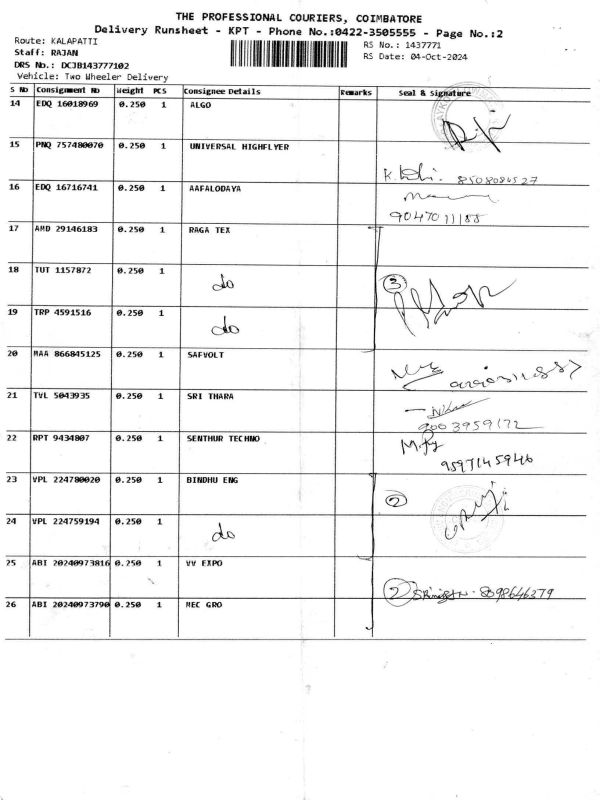 THE PROFESSIONAL COURIERS, COIMBATORE
Delivery Runsheet - KPT - Phone No.:0422-3505555 - Page No.:2
Route: KALAPATTI
RS No.: 1437771
Staff: RAJAN
RS Date: 04-Oct-2024
DRS No.: DCJB143777102
Vehicle: Two Wheeler Delivery
S No Consignment No Weight PCS Consignee Details Remarks Seal & Signature
14 EDQ 16018969 0.250 1 ALGO
15 PNQ 757480070 0.250 1 UNIVERSAL HIGHFLYER
8508084527
16 EDQ 16716741 0.250 1 AAFALODAYA
9047011188
17 AMD 29146183 0.250 1 RAGA TEX
18 TUT 1157872 0.250 1 do 3
19 TRP 4591516 0.250 1 do
20 MAA 866845125 0.250 1 SAFVOLT
21 TVL 5043935 0.250 1 SRI THARA
9003959172
22 RPT 9434807 0.250 1 SENTHUR TECHNO
9597145946
23 VPL 224780020 0.250 1 BINDHU ENG 2
24 VPL 224759194 0.250 1 do
25 ABI 20240973816 0.250 1 VV EXPO
2 8098646379
26 ABI 20240973790 0.250 1 MEC GRO